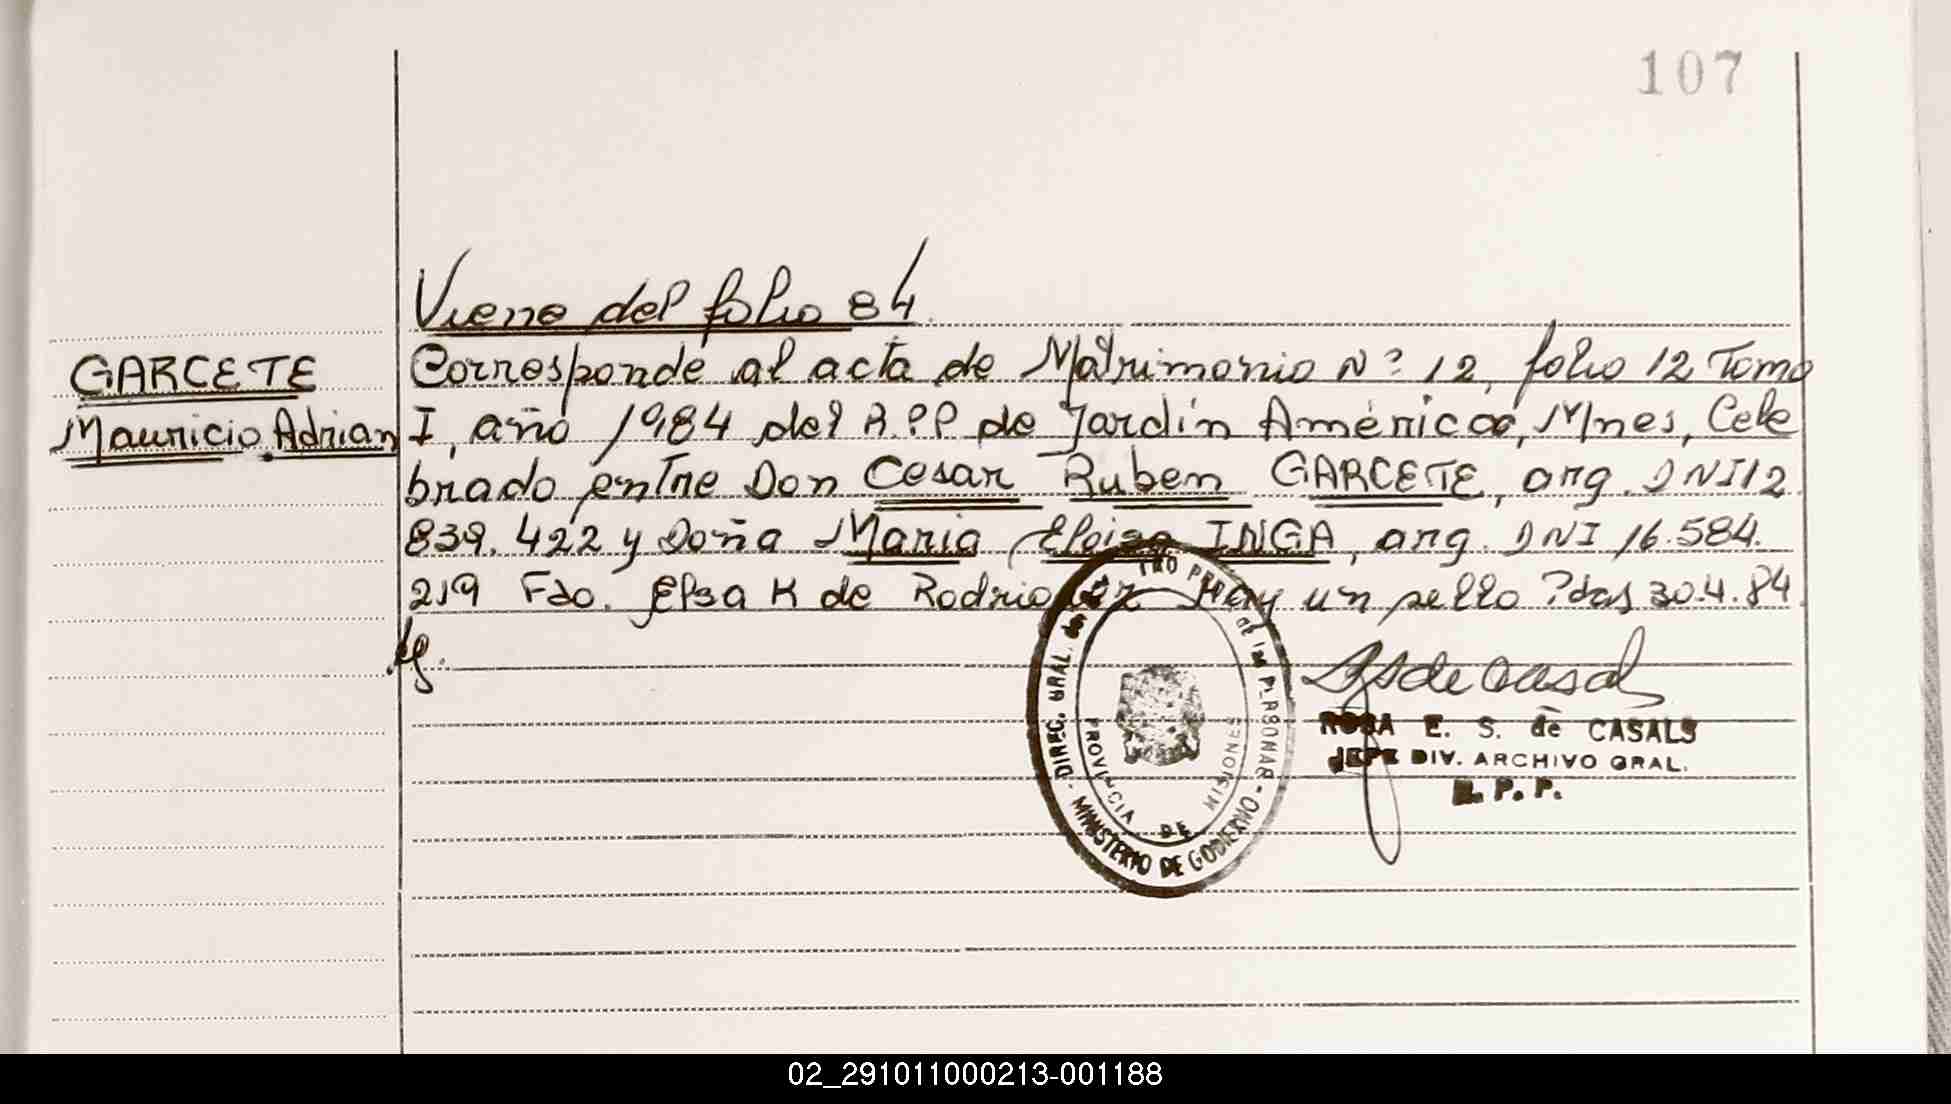 107
Viene del folio 84
GARCETE
Mauricio Adrian
Corresponde al acta de Matrimonio Nº 12, folio 12 Tomo
I, año 1984 del R.P.P de Jardín América, Mnes, Cele
brado entre Don Cesar Ruben GARCETE, arg. DNI 12
839.422 y Doña Maria Eloisa INGA, arg. DNI 16.584.
219 Fdo. Elsa K de Rodriguez Hay un sello Pdas 30.4.84
DIREC. GRAL. del PROV. de las PERSONAS
PROVINCIA DE MISIONES
- MINISTERIO DE GOBIERNO -
ROSA E. S. de CASALS
JEFE DIV. ARCHIVO GRAL.
R. P. P.
02_291011000213-001188